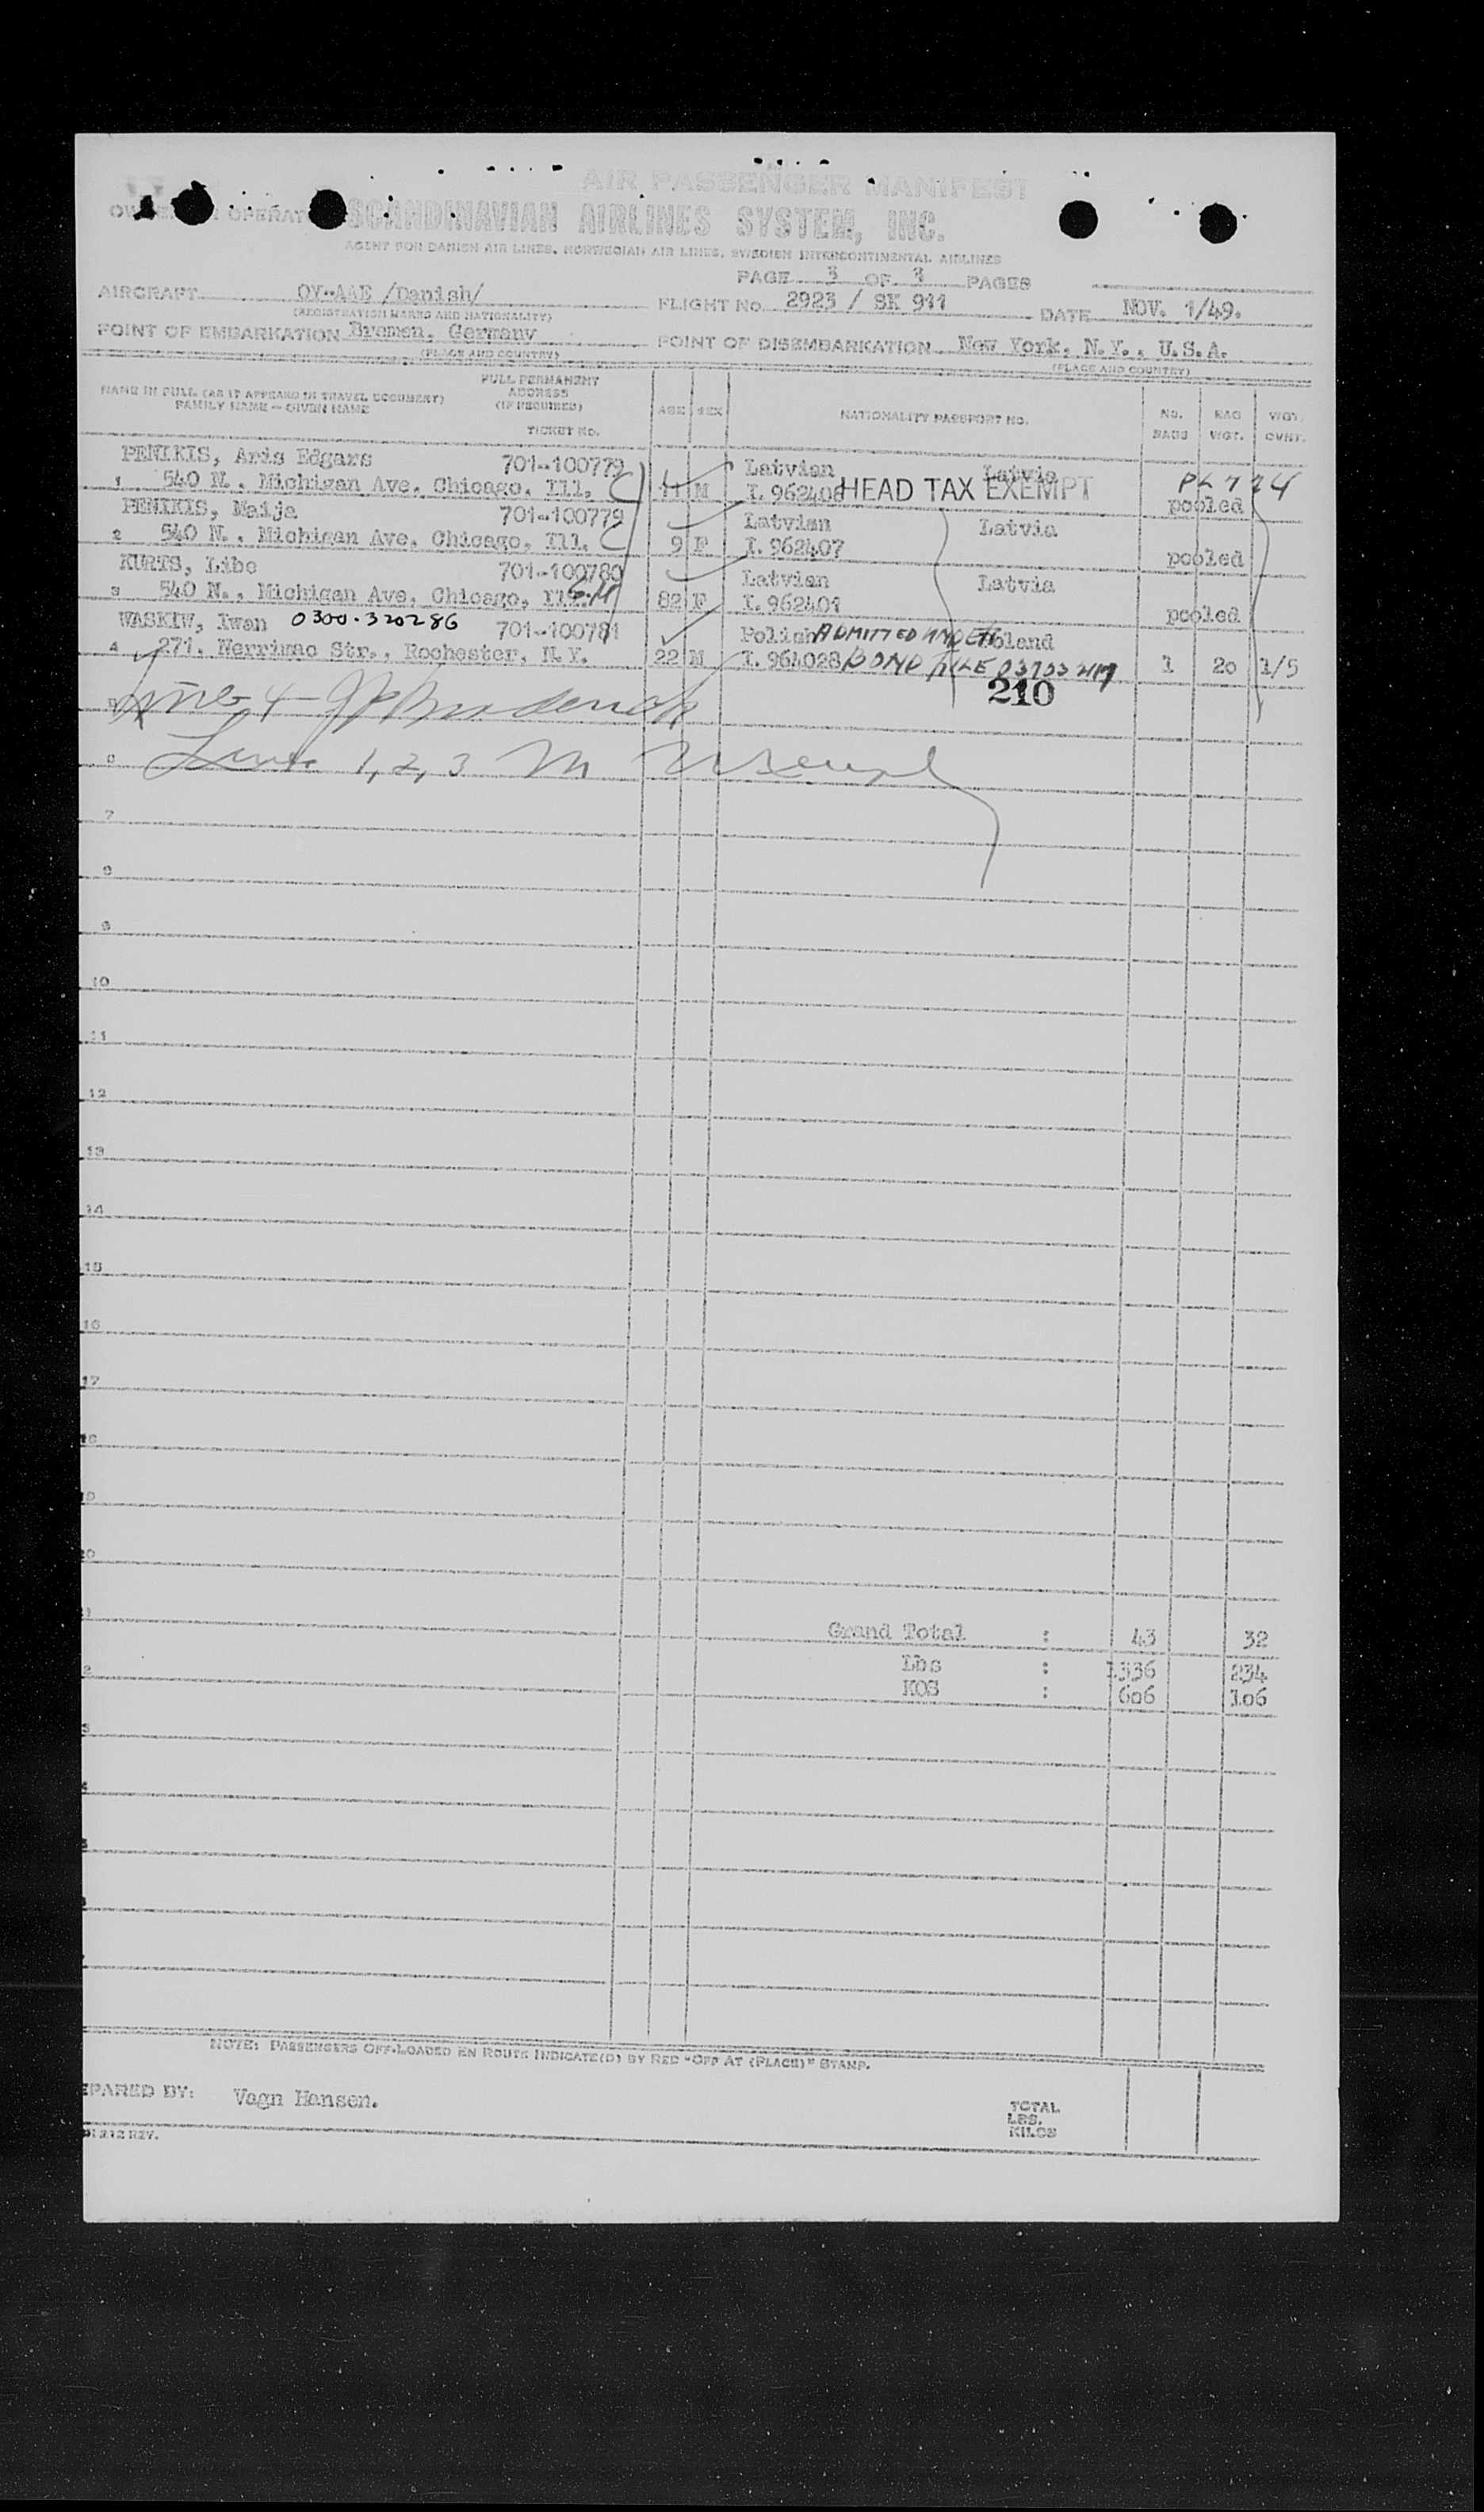 AIR PASSENGER MANIFEST
OWNER OR OPERATOR SCANDINAVIAN AIRLINES SYSTEM, INC.
AGENT FOR DANISH AIR LINES, NORWEGIAN AIR LINES, SWEDISH INTERCONTINENTAL AIRLINES
PAGE 3 OF 3 PAGES
AIRCRAFT OY-AAE /Danish/ FLIGHT No. 2923 / SK 911 DATE NOV. 1/49.
(REGISTRATION MARKS AND NATIONALITY)
POINT OF EMBARKATION Bremen, Germany POINT OF DISEMBARKATION New York, N.Y., U.S.A.
(PLACE AND COUNTRY) (PLACE AND COUNTRY)
NAME IN FULL (AS IT APPEARS IN TRAVEL DOCUMENT) FAMILY NAME - GIVEN NAME
FULL PERMANENT ADDRESS (IF REQUIRED) TICKET NO.
AGE SEX NATIONALITY PASSPORT NO. NO. BAGS BAG WGT. WGT. OVHT.
PENIKIS, Aris Edgars 701-100779 Latvian Latvia
1 540 N. Michigan Ave. Chicago, Ill. C 11 M I. 962408 HEAD TAX EXEMPT pooled
PENIKIS, Maija 701-100779 Latvian Latvia
2 540 N. Michigan Ave. Chicago, Ill. C 9 F I. 962407 pooled
KURTS, Libe 701-100780 Latvian Latvia
3 540 N. Michigan Ave. Chicago, Ill. 82 F I. 962401 pooled
WASKIW, Iwan 0300-320286 701-100781 Polish ADMITTED UNDER Poland
4 271. Merrimac Str., Rochester, N.Y. 22 M I. 964028 BOND FILE 1 20 1/5
210
5 Line 4
6 Line 1, 2, 3
7
8
9
10
11
12
13
14
15
16
17
18
19
20
Grand Total : 43 32
Lbs : 1336 234
KOS : 606 106
NOTE: PASSENGERS OFF-LOADED EN ROUTE INDICATE(D) BY RED "OFF AT (PLACE)" STAMP.
PARED BY: Vagn Hansen.
TOTAL
LBS.
KILOS
212 REV.